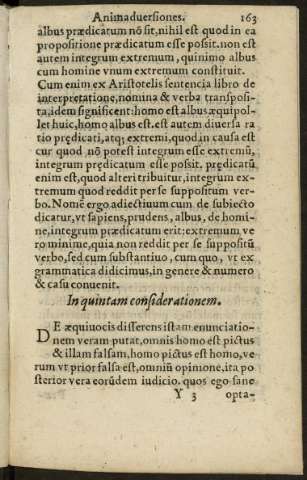 Animaduersiones. 163
albus prædicatum nõ sit, nihil est quod in ea
propositione prædicatum esse possit. non est
autem integrum extremum, quinimo albus
cum homine vnum extremum constituit.
Cum enim ex Aristotelis sententia libro de
interpretatione, nomina & verba transposi-
ta, idem significent: homo est albus æquipol-
let huic, homo albus est. est autem diuersa ra
tio prędicati, atq; extremi, quod in causa est
cur quod nõ potest integrum esse extremũ,
integrum prędicatum esse possit. prędicatũ
enim est, quod alteri tribuitur, integrum ex-
tremum quod reddit per se suppositum ver-
bo. Nomẽ ergo adiectiuum cum de subiecto
dicatur, vt sapiens, prudens, albus, de homi-
ne, integrum prædicatum erit: extremum ve
ro minime, quia non reddit per se suppositũ
verbo, sed cum substantiuo, cum quo, vt ex
grammatica didicimus, in genere & numero
& casu conuenit.
In quintam considerationem.
DE æquiuocis disserens istam enunciatio-
nem veram putat, omnis homo est pictus
& illam falsam, homo pictus est homo, ve-
rum vt prior falsa est, omniũ opinione, ita po
sterior vera eorũdem iudicio. quos ego sane
Y 3 opta-